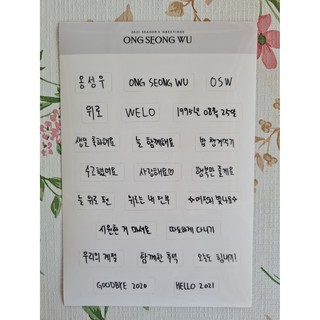 2021 SEASON'S GREETINGS
ONG SEONG WU
옹성우 ONG SEONG WU OSW
위로 WELO 1995년 08월 25일
생일 축하해요 늘 함께해요 밥 챙겨먹기
수고했어요 사랑해요♡ 행복만 줄게요
늘 위로 편 위로는 내 전부 ✧여전히 빛나요✧
시원한 거 마셔요 따뜻하게 다니기
우리의 계절 함께한 추억 오늘도 힘내기!
GOODBYE 2020 HELLO 2021